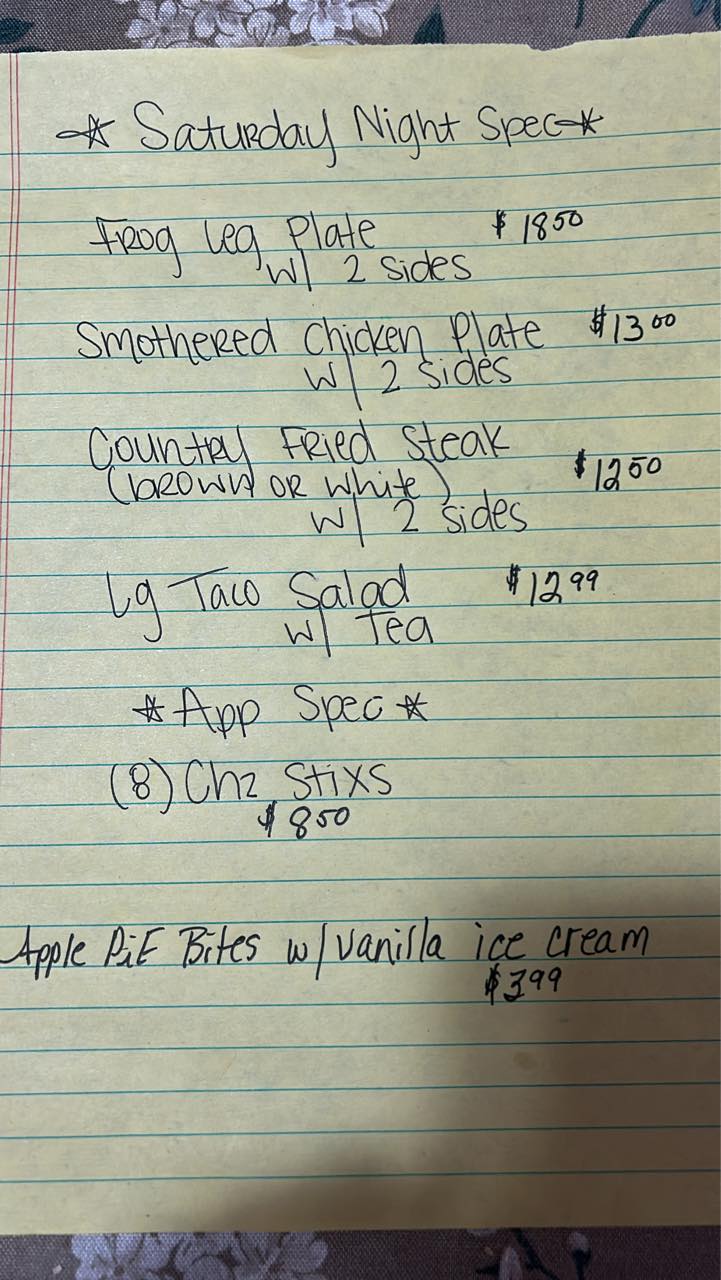 ☆ Saturday Night Spec ☆
Frog Leg Plate $18.50
w/ 2 sides
Smothered Chicken Plate $13.00
w/ 2 sides
Country Fried Steak
(brown or white) $12.50
w/ 2 sides
Lg Taco Salad $12.99
w/ Tea
☆ App Spec ☆
(8) Chz Stixs
$8.50
Apple Pie Bites w/ vanilla ice cream
$3.99